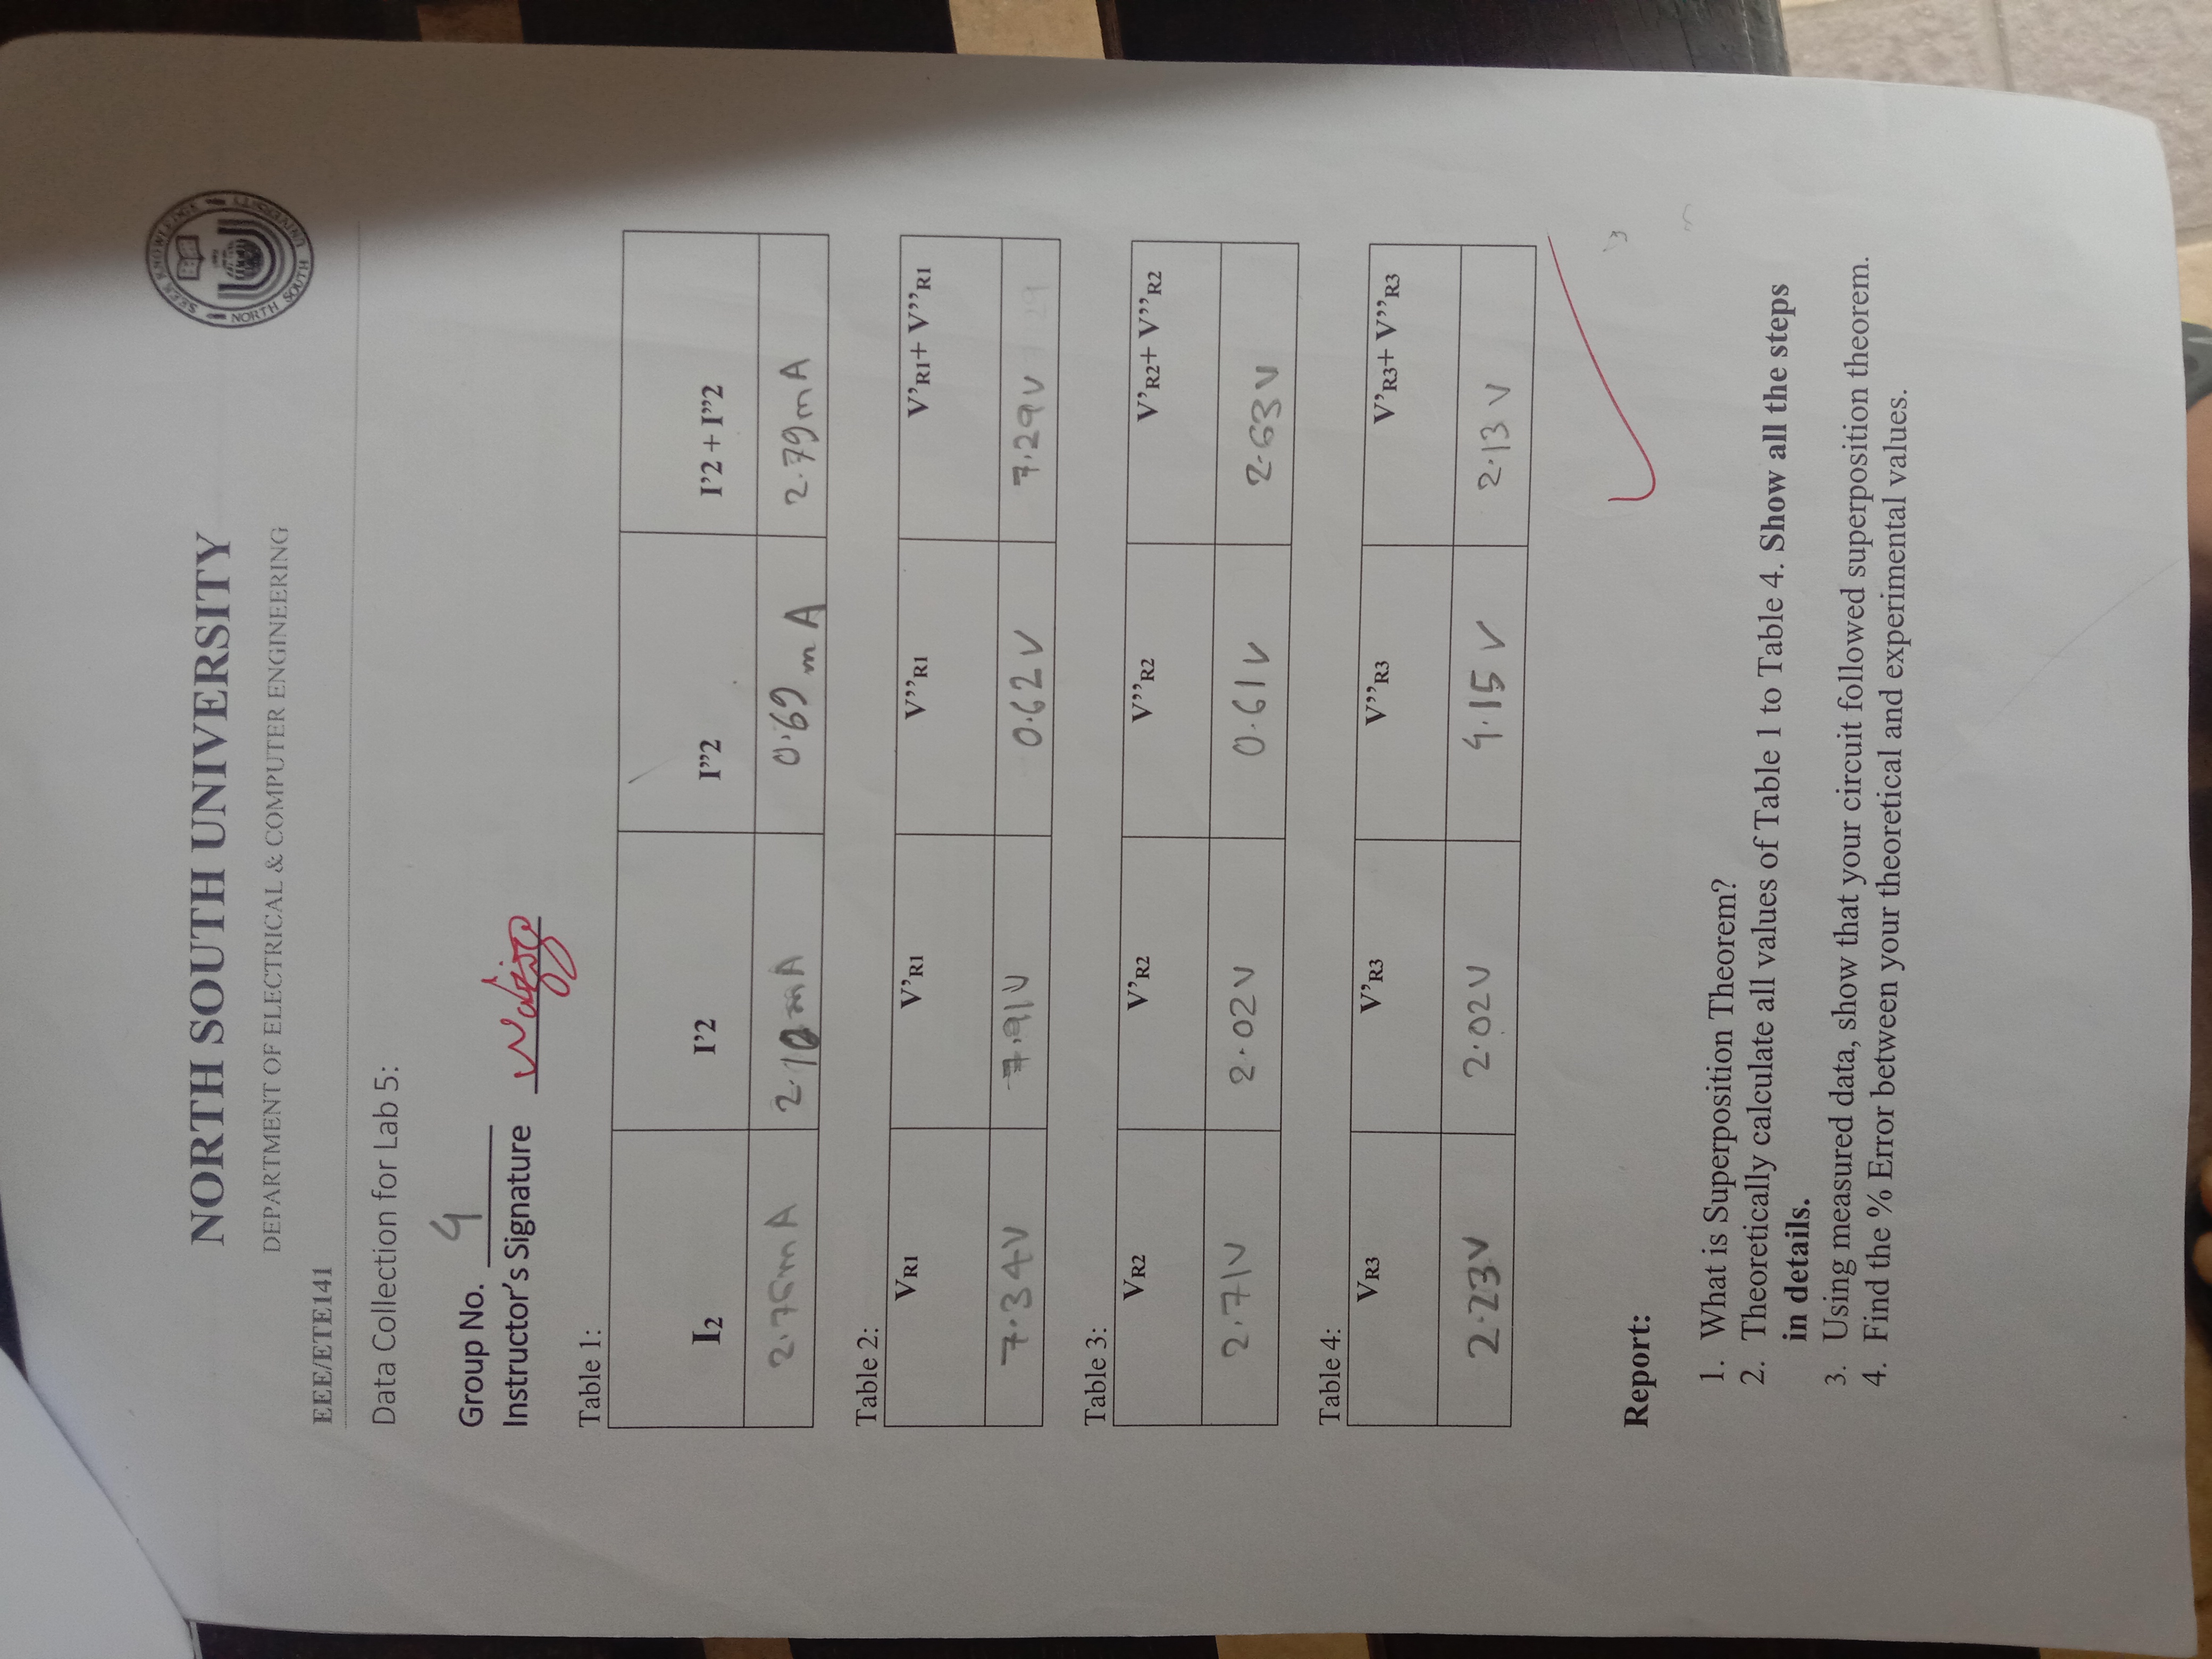 NORTH SOUTH UNIVERSITY
DEPARTMENT OF ELECTRICAL & COMPUTER ENGINEERING
SEEK KNOWLEDGE
NORTH SOUTH UNIVERSITY
EEE/ETE141
Data Collection for Lab 5:
Group No. 4
Instructor's Signature
Table 1:
I2 I'2 I''2 I'2 + I''2
2.10mA 0.69 mA 2.79mA
Table 2:
VR1 V'R1 V''R1 V'R1+ V''R1
7.34V 7.91V 0.62V 7.29V
Table 3:
VR2 V'R2 V''R2 V'R2+ V''R2
2.71V 2.02V 0.61V 2.63V
Table 4:
VR3 V'R3 V''R3 V'R3+ V''R3
2.23V 2.02V 4.15V 2.13V
Report:
1. What is Superposition Theorem?
2. Theoretically calculate all values of Table 1 to Table 4. Show all the steps
in details.
3. Using measured data, show that your circuit followed superposition theorem.
4. Find the % Error between your theoretical and experimental values.